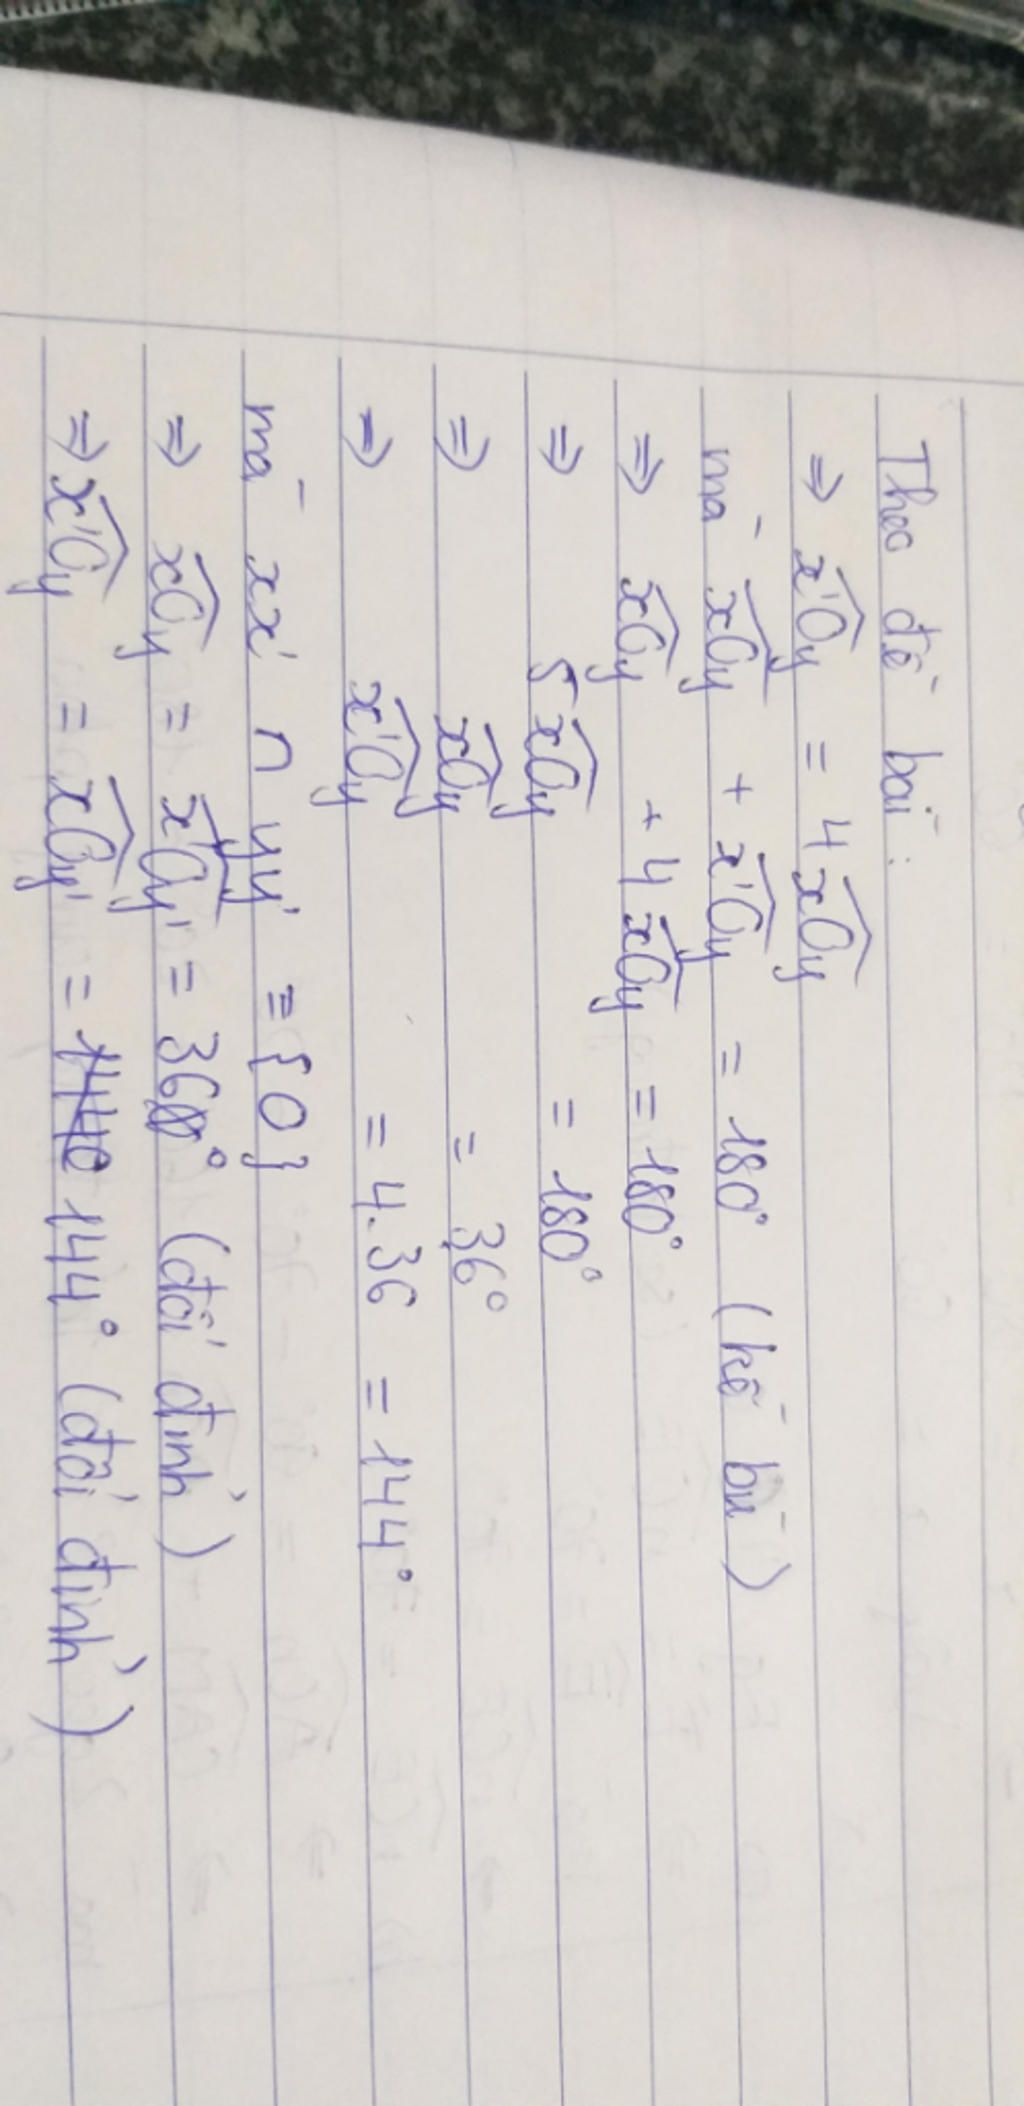 Theo đề bài:
⇒ x'Oy = 4 xOy
mà xOy + x'Oy = 180° (kề bù)
⇒ xOy + 4 xOy = 180°
⇒ 5 xOy = 180°
⇒ xOy = 36°
⇒ x'Oy = 4.36 = 144°
mà xx' ∩ yy' = {O}
⇒ xOy = x'Oy' = 36° (đối đỉnh)
⇒ x'Oy = xOy' = 144° (đối đỉnh)